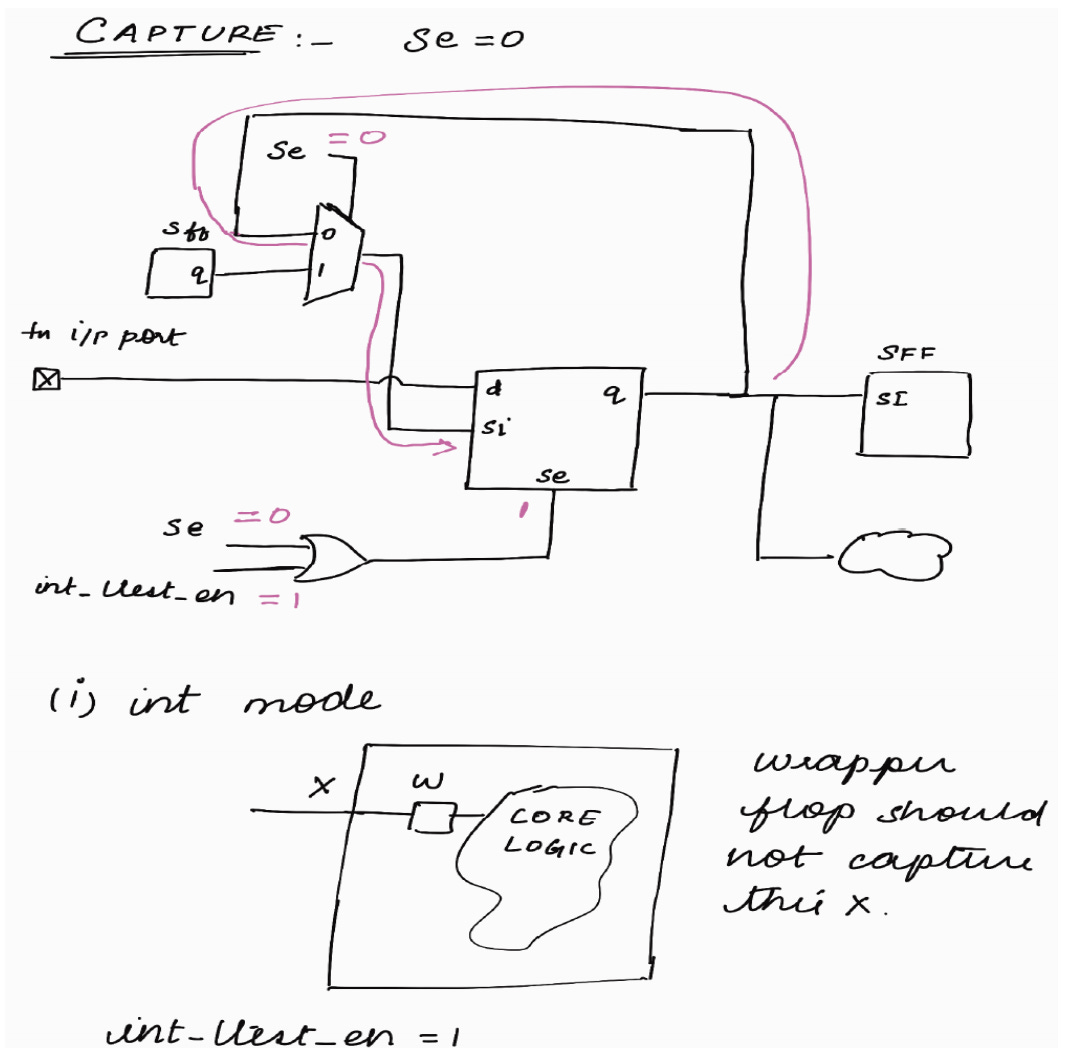 CAPTURE :- Se = 0
Se = 0
sff
0
q
1
fn i/p port
SFF
d
q
SI
si
se
1
se = 0
int_ltest_en = 1
(i) int mode
x
W
CORE
LOGIC
wrapper
flop should
not capture
this x.
int-ltest_en = 1